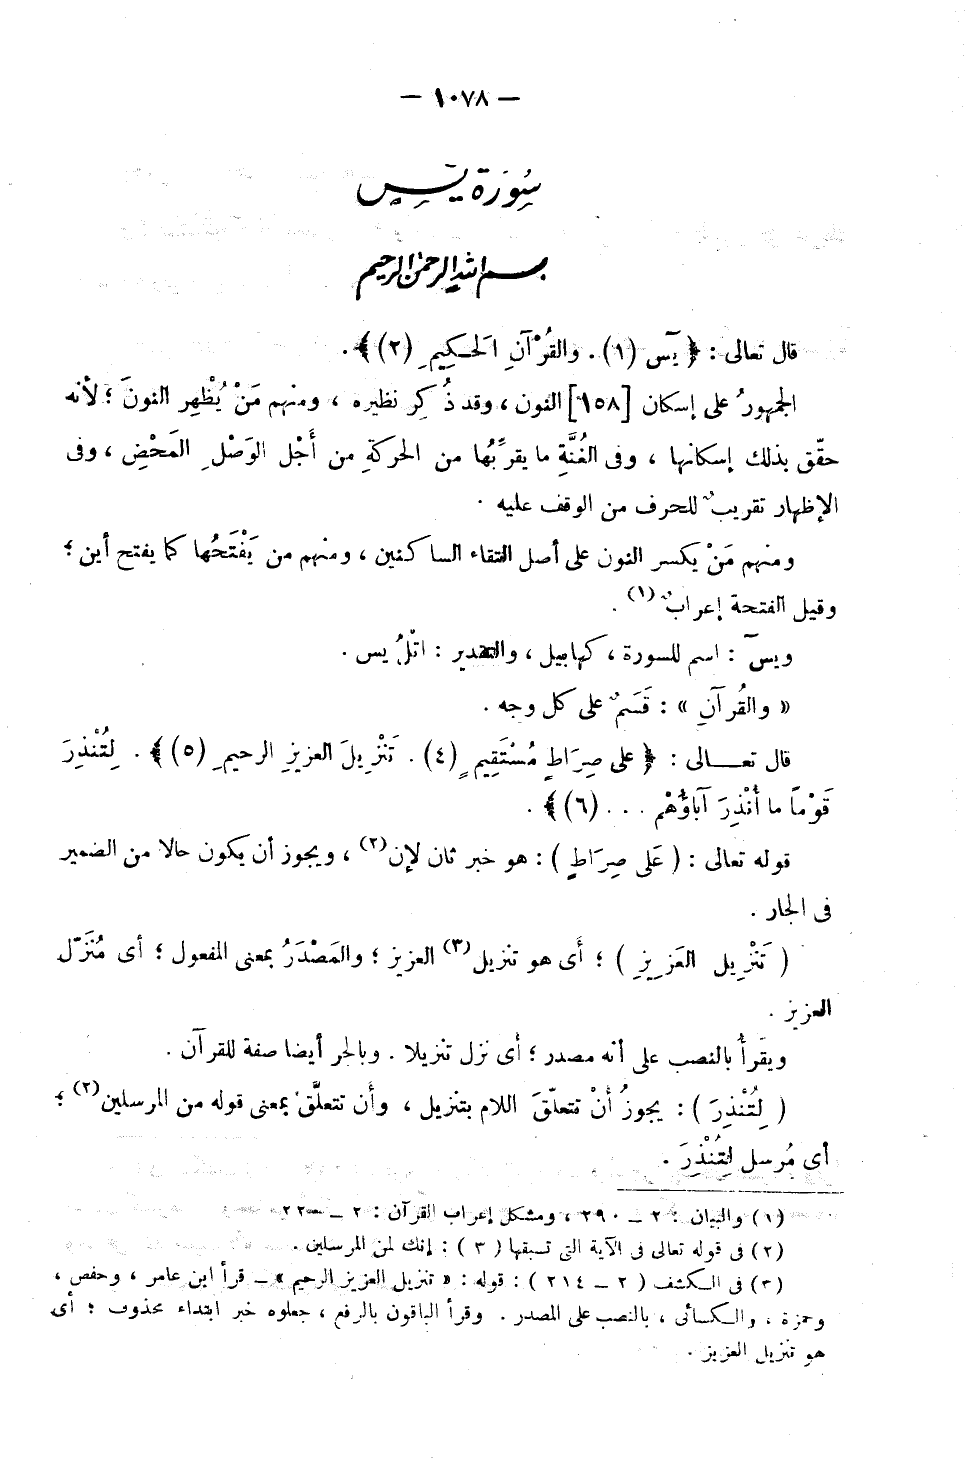 — ١٠٧٨ —
سُورَة يٓسٓ
بسم الله الرحمن الرحيم
قال تعالى : ﴿ يٓس (١) . والقُرْآنِ الحَكِيمِ (٢) ﴾ .
الجمهورُ على إسكان [١٥٨] النون ، وقد ذُكِر نظيره ، ومنهم مَنْ يُظْهِر النونَ ؛ لأنه
حقّق بذلك إسكانها ، وفى الغُنَّةِ ما يقرِّبُها من الحركةِ من أَجْل الوَصْلِ المَحْضِ ، وفى
الإظهار تقريبٌ للحرف من الوقف عليه .
ومنهم مَنْ يكسر النون على أصل التقاء الساكنين ، ومنهم من يَفْتَحُها كما يفتح أين ؛
وقيل الفتحة إعرابٌ (١) .
ويسٓ : اسم للسورة ، كهابيل ، والتقدير : اتْلُ يس .
« والقُرآنِ » : قَسَمٌ على كل وجه .
قال تعـــالى : ﴿ على صِرَاطٍ مُسْتَقِيمٍ (٤) . تَنْزِيلَ العزيزِ الرحيمِ (٥) ﴾ . لِتُنْذِرَ
قَوْماً ما أُنْذِرَ آباؤُهُمْ . . . (٦) ﴾ .
قوله تعالى : ( عَلى صِرَاطٍ ) : هو خبر ثان لإن (٢) ، ويجوز أن يكون حالا من الضمير
فى الجار .
( تَنْزِيل العَزِيزِ ) ؛ أَى هو تنزيل (٣) العزيز ؛ والمَصْدَرُ بمعنى المفعول ؛ أى مُنَزّل
العزيز .
ويقرأُ بالنصب على أنه مصدر ؛ أى نزل تنزيلا . وبالجر أيضا صفة للقرآن .
( لِتُنْذِرَ ) : يجوزُ أَنْ تتعلّقَ اللام بتنزيل ، وأن تتعلَّق بمعنى قوله من المرسلين (٢) ؛
أى مُرسل لِتُنْذِرَ .
(١) والبيان : ٢ – ٢٩٠ ، ومشكل إعراب القرآن : ٢ – ٢٢٠
(٢) فى قوله تعالى فى الآية التى تسبقها ( ٣ ) : إنك لمن المرسلين .
(٣) فى الكشف ( ٢ – ٢١٤ ) : قوله : « تنزيل العزيز الرحيم » – قرأ ابن عامر ، وحفص ،
وحمزة ، والكسائى ، بالنصب على المصدر . وقرأ الباقون بالرفع ، جعلوه خبر ابتداء محذوف ؛ أى
هو تنزيل العزيز .